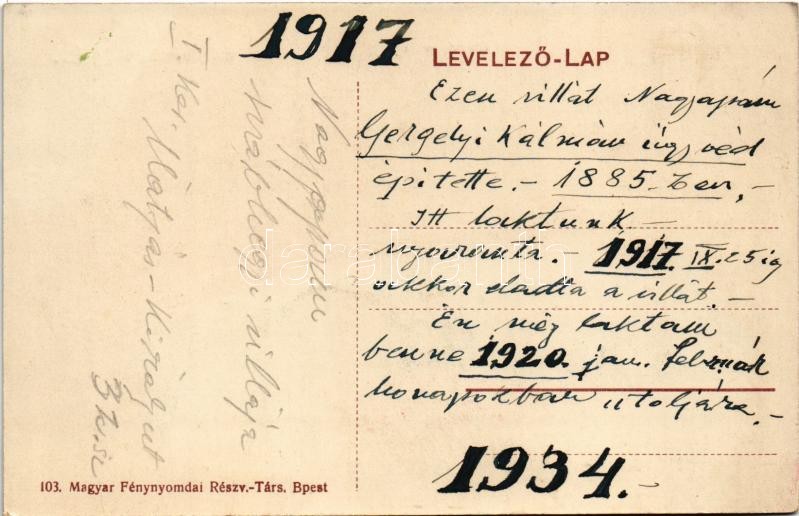 1917
LEVELEZŐ-LAP
Ezen villát Nagyapám
Gergelyi Kálmán ügyvéd
építette.- 1885-ben,-
Itt laktunk-
nyaranta.- 1917. IX. 25 ig
akkor eladta a villát.-
Én még laktam
benne 1920. jan. február
hónapokban utoljára.-
1934.-
Nagyapám
svábhegyi villája
I. Ker. Mátyás-Király út
103. Magyar Fénynyomdai Részv.-Társ. Bpest
darabanth